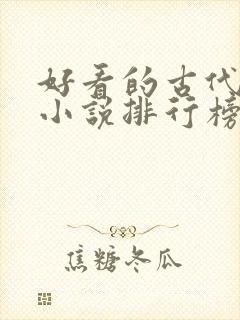 好看的古代
小说排行榜
焦糖冬瓜